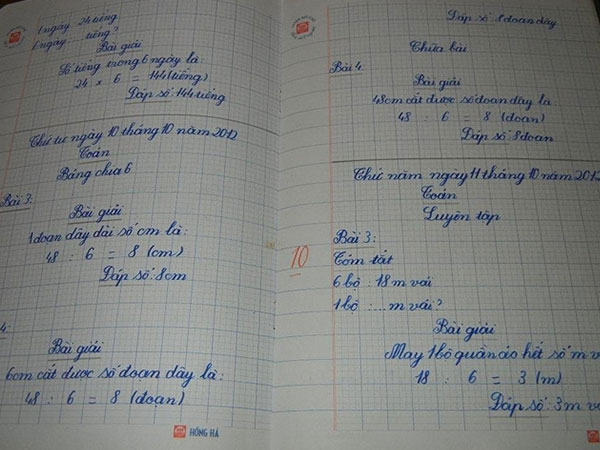 1 ngày 24 tiếng
6 ngày ... tiếng?
Bài giải
Số tiếng trong 6 ngày là
24 x 6 = 144 (tiếng)
Đáp số: 144 tiếng
Thứ tư ngày 10 tháng 10 năm 2012
Toán
Bảng chia 6
Bài 3:
Bài giải
1 đoạn dây dài số cm là:
48 : 6 = 8 (cm)
Đáp số: 8cm
4.
Bài giải
6cm cắt được số đoạn dây là:
48 : 6 = 8 (đoạn)
HỒNG HÀ
Đáp số: 8 đoạn dây
Chữa bài
Bài 4.
Bài giải
48cm cắt được số đoạn dây là:
48 : 6 = 8 (đoạn)
Đáp số: 8 đoạn
Thứ năm ngày 11 tháng 10 năm 2012
Toán
Luyện tập
10
Bài 3:
Tóm tắt
6 bộ : 18 m vải
1 bộ : .... m vải?
Bài giải
May 1 bộ quần áo hết số m v
18 : 6 = 3 (m)
Đáp số: 3m vả